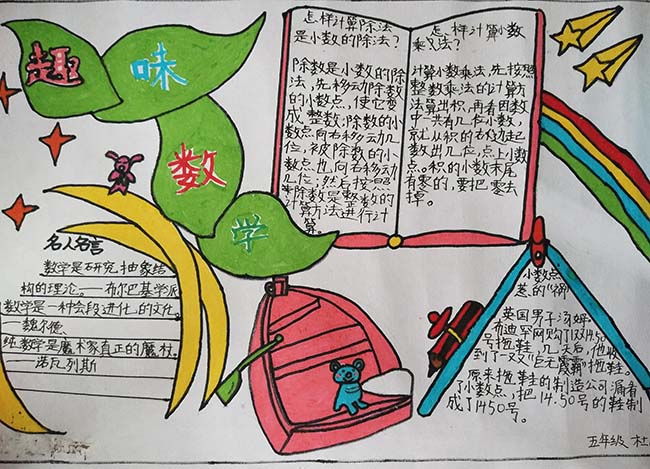 趣味数学
怎样计算除法
是小数的除法？
除数是小数的除
法，先移动除数
的小数点，使它变
成整数；除数的小
数点向右移动几
位，被除数的小
数点也向右移动
几位；然后按照
除数是整数的
计算方法进行计
算。
怎样计算小数
乘法？
计算小数乘法，先按照
整数乘法的计算方
法算出积，再看因数
中一共有几位小数，
就从积的右边起
数出几位，点上小数
点。积的小数末尾
有零的，要把零去
掉。
名人名言
数学是研究抽象结
构的理论。——布尔巴基学派
数学是一种会段进化的文化。
——魏尔德
纯数学是魔术家真正的魔杖。
——诺瓦列斯
小数点
惹的“祸”
英国男子汤姆·
布迪罕网购了双14.50
号拖鞋，几天后，他收
到了一双“巨无霸”拖鞋。
原来拖鞋的制造公司漏看
了小数点，把14.50号的鞋制
成了1450号。
五年级 杜